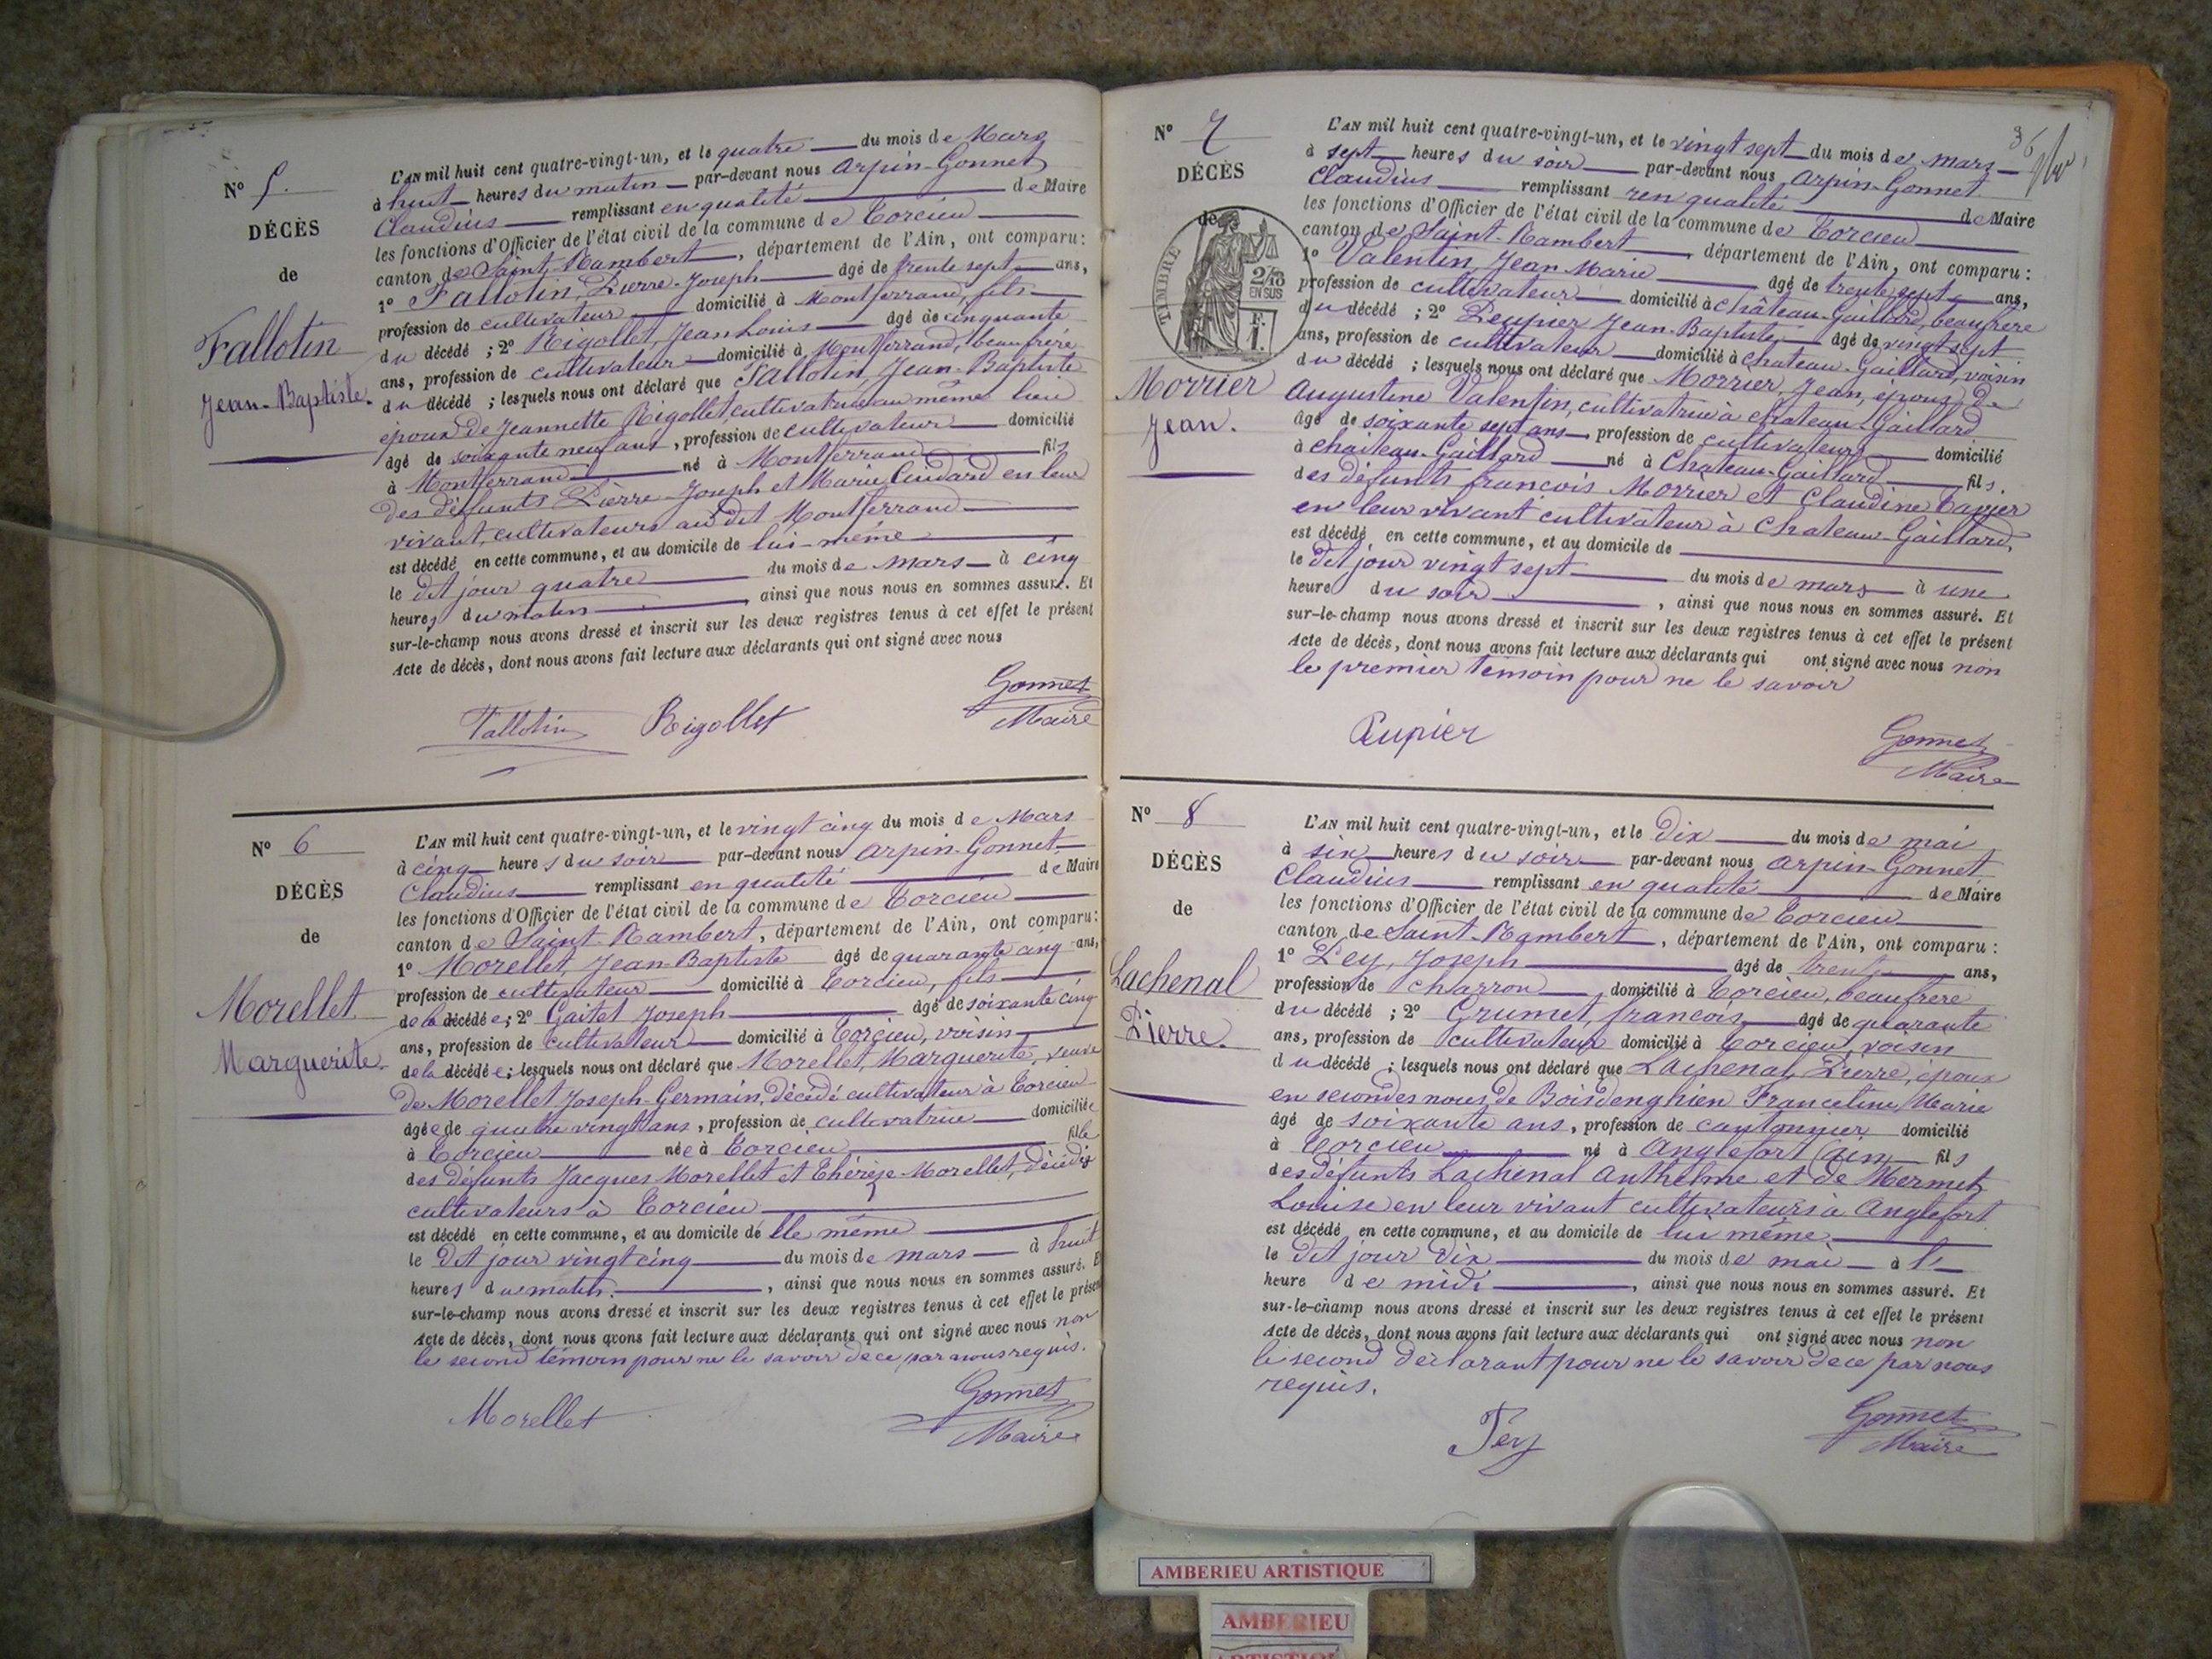 N° 5.
DÉCÈS
de
Fallotin
Jean-Baptiste.
L'AN mil huit cent quatre-vingt-un, et le quatre du mois de Mars
à huit heures du matin par-devant nous Arpin-Gonnet
Claudius remplissant en qualité de Maire
les fonctions d'Officier de l'état civil de la commune de Torcieu
canton de Saint-Rambert, département de l'Ain, ont comparu:
1° Fallotin, Pierre-Joseph âgé de trente sept ans,
profession de cultivateur domicilié à Montferrand, fils
du décédé ; 2° Rigollet, Jean Louis âgé de cinquante
ans, profession de cultivateur domicilié à Montferrand, beaufrère
du décédé ; lesquels nous ont déclaré que Fallotin, Jean-Baptiste
époux de Jeannette Rigollet, cultivatrice au même lieu
âgé de soixante neuf ans, profession de cultivateur domicilié
à Montferrand né à Montferrand fils
des défunts Pierre-Joseph et Marie Cudard en leur
vivant, cultivateurs au dit Montferrand
est décédé en cette commune, et au domicile de lui-même
le dit jour quatre du mois de mars à cinq
heures du matin, ainsi que nous nous en sommes assuré. Et
sur-le-champ nous avons dressé et inscrit sur les deux registres tenus à cet effet le présent
Acte de décès, dont nous avons fait lecture aux déclarants qui ont signé avec nous
Fallotin Rigollet Gonnet
Maire
N° 6
DÉCÈS
de
Morellet
Marguerite.
L'AN mil huit cent quatre-vingt-un, et le vingt cinq du mois de Mars
à cinq heures du soir par-devant nous Arpin-Gonnet
Claudius remplissant en qualité de Maire
les fonctions d'Officier de l'état civil de la commune de Torcieu
canton de Saint-Rambert, département de l'Ain, ont comparu:
1° Morellet, Jean-Baptiste âgé de quarante cinq ans,
profession de cultivateur domicilié à Torcieu, fils
de la décédée ; 2° Gaitet Joseph âgé de soixante cinq
ans, profession de cultivateur domicilié à Torcieu, voisin
de la décédée ; lesquels nous ont déclaré que Morellet, Marguerite, veuve
de Morellet Joseph-Germain, décédé cultivateur à Torcieu
âgée de quatre vingt ans, profession de cultivatrice domiciliée
à Torcieu née à Torcieu fille
des défunts Jacques Morellet et Thérèze Morellet, décédés
cultivateurs à Torcieu
est décédé en cette commune, et au domicile de lle même
le dit jour vingt cinq du mois de mars à huit
heures du matin, ainsi que nous nous en sommes assuré. Et
sur-le-champ nous avons dressé et inscrit sur les deux registres tenus à cet effet le présent
Acte de décès, dont nous avons fait lecture aux déclarants qui ont signé avec nous non
le second témoin pour ne le savoir de ce par nous requis.
Morellet Gonnet
Maire
36
N° 7
DÉCÈS
de
TIMBRE
2/10
EN SUS
F.
1.
Morrier
Jean.
L'AN mil huit cent quatre-vingt-un, et le vingt sept du mois de mars
à sept heures du soir par-devant nous Arpin-Gonnet
Claudius remplissant ren qualité de Maire
les fonctions d'Officier de l'état civil de la commune de Torcieu
canton de Saint-Rambert département de l'Ain, ont comparu :
1° Valentin, Jean Marie âgé de trente sept ans,
profession de cultivateur domicilié à Château-Gaillard, beaufrere
du décédé ; 2° Peupier Jean-Baptiste, âgé de vingt sept
ans, profession de cultivateur domicilié à Chateau-Gaillard, voisin
du décédé ; lesquels nous ont déclaré que Morrier, Jean, époux de
Augustine Valentin, cultivatrice à Chateau-Gaillard
âgé de soixante sept ans, profession de cultivateur domicilié
à Chaiteau-Gaillard né à Chateau-Gaillard fils.
des défunts françois Morrier et Claudine Tavier
en leur vivant cultivateur à Chateau-Gaillard,
est décédé en cette commune, et au domicile de
le dit jour vingt sept du mois de mars à une
heure du soir, ainsi que nous nous en sommes assuré. Et
sur-le-champ nous avons dressé et inscrit sur les deux registres tenus à cet effet le présent
Acte de décès, dont nous avons fait lecture aux déclarants qui ont signé avec nous non
le premier témoin pour ne le savoir
Peupier Gonnet
Maire
N° 8
DÉCÈS
de
Lachenal
Pierre.
L'AN mil huit cent quatre-vingt-un, et le dix du mois de mai
à six heures du soir par-devant nous Arpin-Gonnet
Claudius remplissant en qualité de Maire
les fonctions d'Officier de l'état civil de la commune de Torcieu
canton de Saint-Rambert, département de l'Ain, ont comparu :
1° Pey, Joseph âgé de trente ans,
profession de charron domicilié à Torcieu, beaufrère
du décédé ; 2° Grumet, françois âgé de quarante
ans, profession de cultivateur domicilié à Torcieu, voisin
du décédé ; lesquels nous ont déclaré que Lachenal, Pierre, époux
en secondes noces de Boisdenghien Franceline, Marie
âgé de soixante ans, profession de cantonnier domicilié
à Torcieu né à Anglefort (ain) fils
des défunts Lachenal Anthelme et de Mermet
Louise en leur vivant cultivateurs à Anglefort
est décédé en cette commune, et au domicile de lui même
le dit jour dix du mois de mai à l'
heure de midi, ainsi que nous nous en sommes assuré. Et
sur-le-champ nous avons dressé et inscrit sur les deux registres tenus à cet effet le présent
Acte de décès, dont nous avons fait lecture aux déclarants qui ont signé avec nous non
le second déclarant pour ne le savoir de ce par nous
requis.
Pey Gonnet
Maire
AMBERIEU ARTISTIQUE
AMBERIEU
ARTISTIQUE